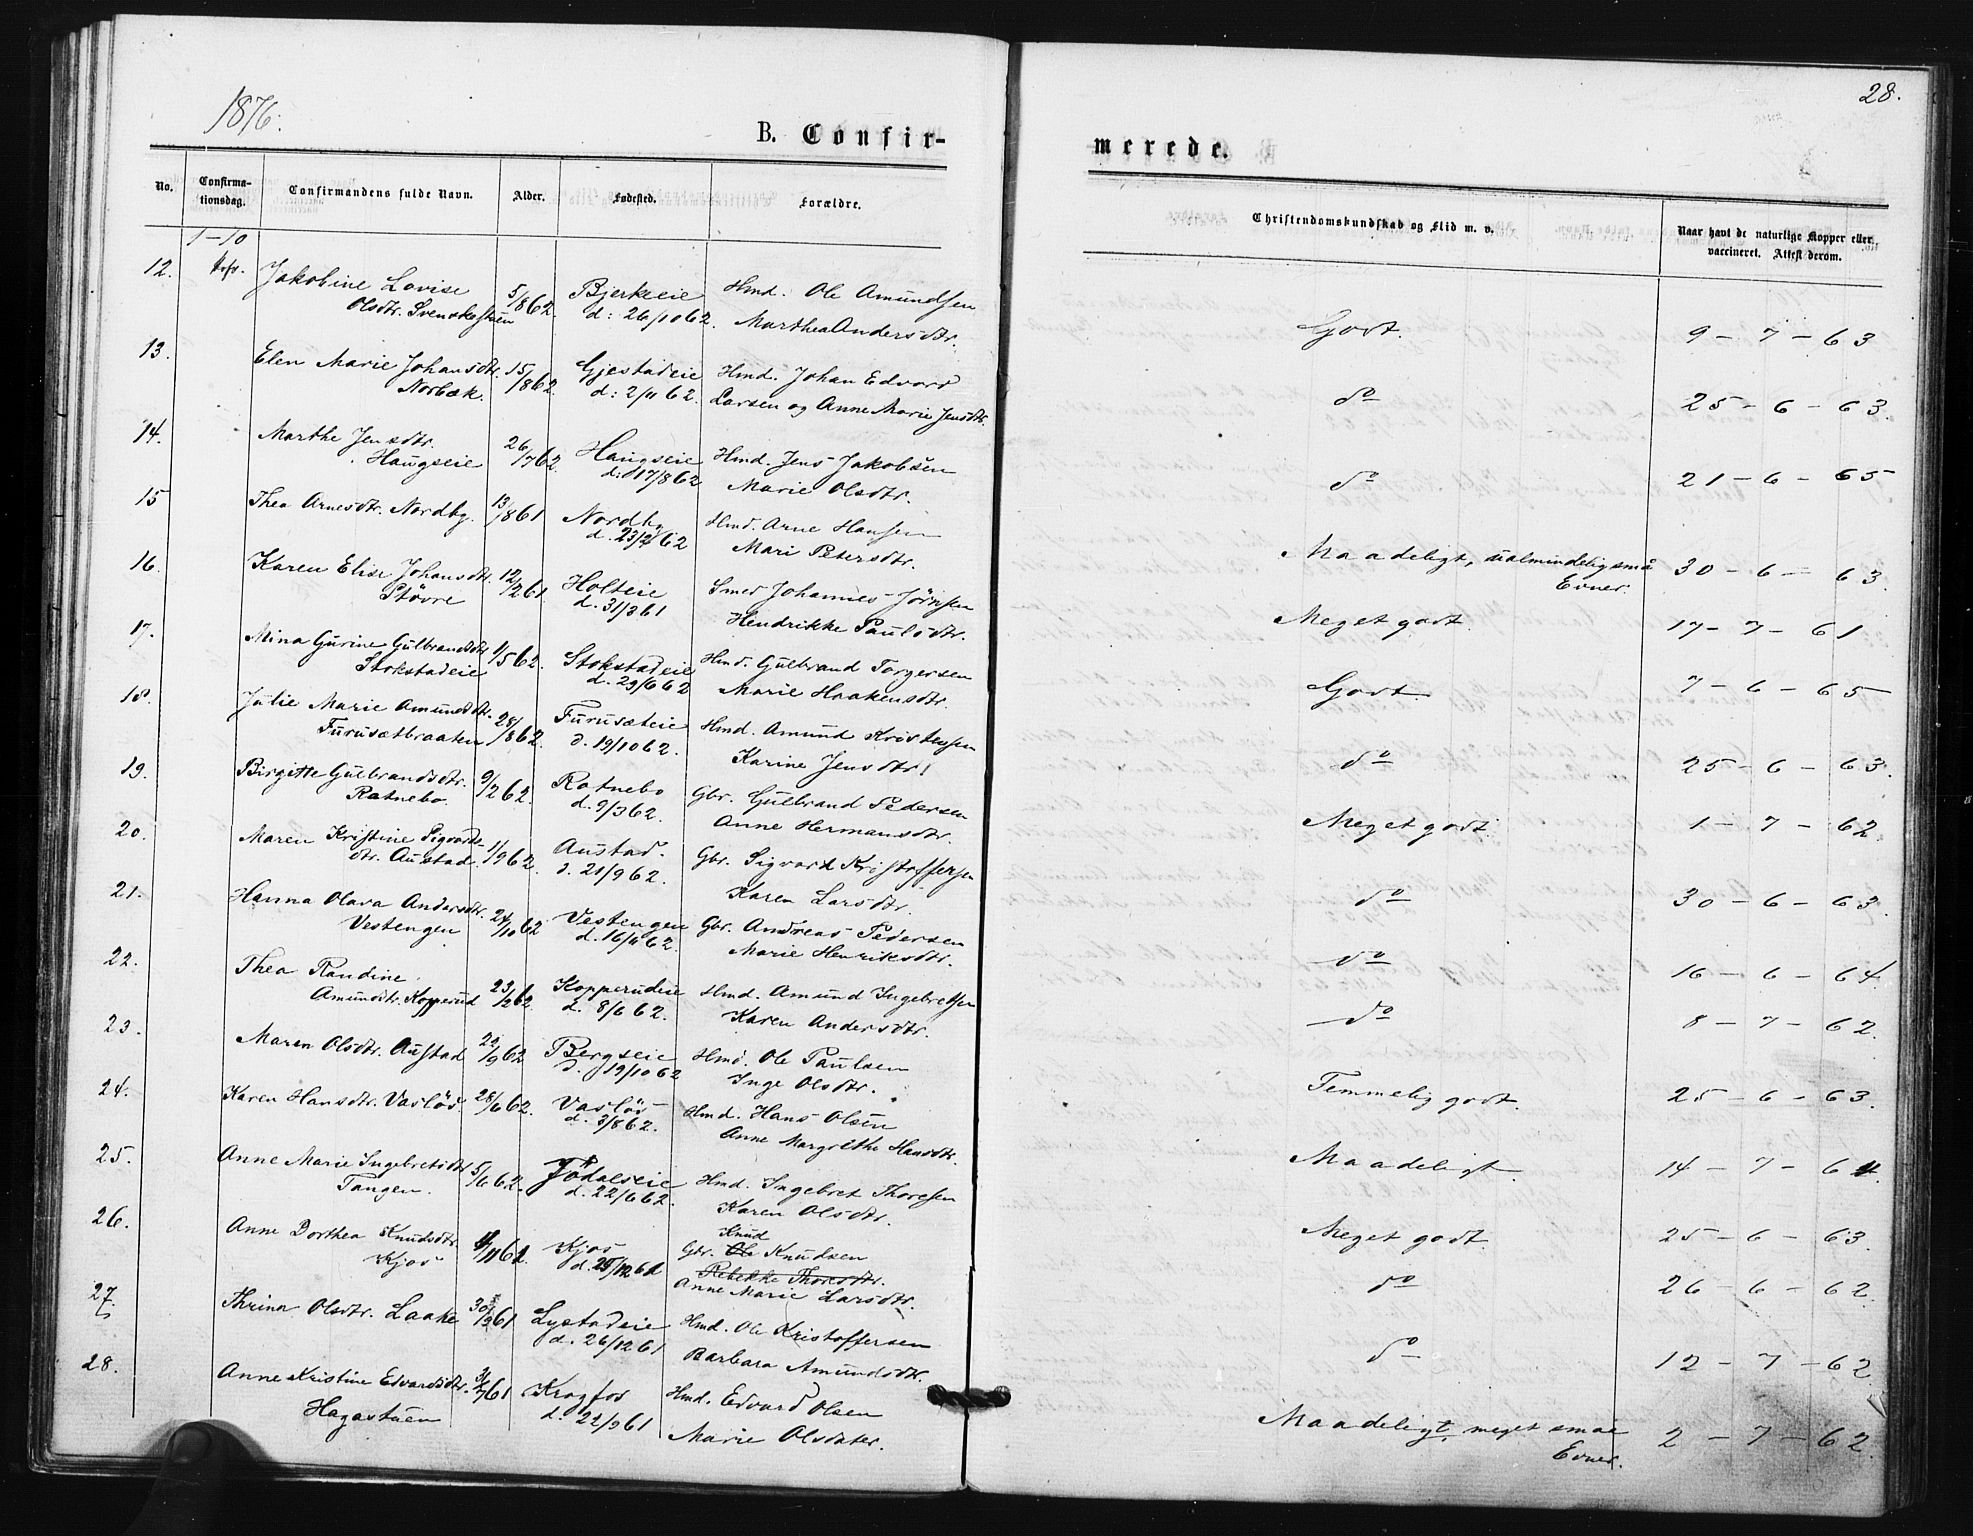 1876.
28.
B. Confir-
merede.
No.
Confirma-
tionsdag.
Confirmandens fulde Navn.
Alder.
Fødested.
Forældre.
Christendomskundskab og Flid m. v.
Naar havt de naturlige Kopper eller
vaccineret. Attest derom.
1-10
12. Jakobine Lovise 5/8 62. Bjerkeeie Hmd. Ole Amundsen
Olsdtr. Svenskestuen d: 26/10 62. Marthea Andersdtr.
Godt. 9 - 7 - 63
13. Elen Marie Johansdtr. 15/8 62. Gjestadeie Hmd. Johan Edvard
Norbæk. d: 2/11 62. Larsen og Anne Marie Jensdtr.
do 25 - 6 - 63.
14. Marthe Jensdtr. 26/7 62. Haugseie Hmd. Jens Jakobsen
Haugseie d: 17/8 62 Marie Olsdtr.
do 21 - 6 - 65
15 Thea Arnesdtr. Nordby. 13/8 61 Nordby Hmd. Arne Hansen
d. 23/2 62 Mari Petersdtr.
Maadeligt, ualmindelig små 30 - 6 - 63
Evner.
16. Karen Elise Johansdtr. 12/2 61. Holteie Smed Johannes Jörgsen
Støvre d. 31/3 61 Hendrikke Paulsdtr.
Meget godt. 17 - 7 - 61
17. Mina Gurine Gulbrandsdtr 1/5 62. Stokstadeie Hmd. Gulbrand Torgersen
Stokstadeie d. 29/6 62 Marie Haakensdtr.
Godt. 7 - 6 - 65
18. Julie Marie Amundsdtr. 28/8 62. Furusæteie Hmd. Amund Kristensen
Furusætbraaten d. 19/10 62. Karine Jensdtr.
do 25 - 6 - 63.
19. Birgitte Gulbrandsdtr. 9/2 62. Ratnebo Gbr. Gulbrand Pedersen
Ratnebo. d. 9/3 62. Anne Hermansdtr.
Meget godt. 1 - 7 - 62
20. Maren Kristine Sigvards- 1/9 62. Austad. Gbr. Sigvard Kristoffersen
dtr. Austad. d. 21/9 62. Karen Larsdtr.
do 30 - 6 - 63.
21. Hanna Olava Andersdtr. 24/10 62 Vestengen Gbr. Andreas Pedersen
Vestengen d. 16/11 62. Marie Henriksdtr.
do 16 - 6 - 64
22. Thea Randine 23/2 62. Kopperudeie Hmd. Amund Ingebretsen
Amundsdtr. Kopperud d. 8/6 62. Karen Andersdtr.
do 8 - 7 - 62.
23. Maren Olsdtr. Austad 20/9 62 Bergseie Hmd. Ole Paulsen
d. 19/10 62 Inge Olsdtr.
Temmelig godt. 25 - 6 - 63.
24. Karen Hansdtr. Vasløs 28/6 62. Vasløs Hmd. Hans Olsen
d. 3/8 62. Anne Margrethe Hansdtr.
Maadeligt. 14 - 7 - 64
25. Anne Marie Ingebretsdtr 5/6 62. Jødalseie Hmd. Ingebret Thoresen
Tangen. d. 22/6 62. Karen Olsdtr.
Meget godt. 25 - 6 - 63.
26. Anne Dorthea Knudsdtr. 4/11 61. Kjos Gbr. Knud Knudsen
Kjos d. 25/12 61 Rebekke Thoresdtr.
Anne Marie Larsdtr.
do 26 - 6 - 62.
27. Thrina Olsdtr. Laake 30/9 61 Lystadeie Hmd. Ole Kristoffersen
d. 26/12 61 Barbara Amundsdtr.
do 12 - 7 - 62.
28. Anne Kristine Edvardsdtr. 31/7 61 Kragfos Hmd. Edvard Olsen
Hagastuen d. 22/9 61 Marie Olsdater.
Maadeligt, meget smaae 2 - 7 - 62.
Evner.